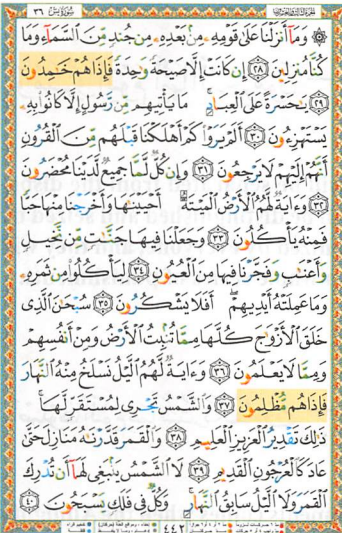 الجزء الثالث والعشرون ٣٦ سورة يس
۞ وَمَآ أَنزَلْنَا عَلَىٰ قَوْمِهِۦ مِنۢ بَعْدِهِۦ مِن جُندٍ مِّنَ ٱلسَّمَآءِ وَمَا
كُنَّا مُنزِلِينَ ٢٨ إِن كَانَتْ إِلَّا صَيْحَةً وَٰحِدَةً فَإِذَا هُمْ خَٰمِدُونَ
٢٩ يَٰحَسْرَةً عَلَى ٱلْعِبَادِ ۚ مَا يَأْتِيهِم مِّن رَّسُولٍ إِلَّا كَانُوا۟ بِهِۦ
يَسْتَهْزِءُونَ ٣٠ أَلَمْ يَرَوْا۟ كَمْ أَهْلَكْنَا قَبْلَهُم مِّنَ ٱلْقُرُونِ
أَنَّهُمْ إِلَيْهِمْ لَا يَرْجِعُونَ ٣١ وَإِن كُلٌّ لَّمَّا جَمِيعٌ لَّدَيْنَا مُحْضَرُونَ
٣٢ وَءَايَةٌ لَّهُمُ ٱلْأَرْضُ ٱلْمَيْتَةُ أَحْيَيْنَٰهَا وَأَخْرَجْنَا مِنْهَا حَبًّا
فَمِنْهُ يَأْكُلُونَ ٣٣ وَجَعَلْنَا فِيهَا جَنَّٰتٍ مِّن نَّخِيلٍ
وَأَعْنَٰبٍ وَفَجَّرْنَا فِيهَا مِنَ ٱلْعُيُونِ ٣٤ لِيَأْكُلُوا۟ مِن ثَمَرِهِۦ
وَمَا عَمِلَتْهُ أَيْدِيهِمْ ۖ أَفَلَا يَشْكُرُونَ ٣٥ سُبْحَٰنَ ٱلَّذِى
خَلَقَ ٱلْأَزْوَٰجَ كُلَّهَا مِمَّا تُنۢبِتُ ٱلْأَرْضُ وَمِنْ أَنفُسِهِمْ
وَمِمَّا لَا يَعْلَمُونَ ٣٦ وَءَايَةٌ لَّهُمُ ٱلَّيْلُ نَسْلَخُ مِنْهُ ٱلنَّهَارَ
فَإِذَا هُم مُّظْلِمُونَ ٣٧ وَٱلشَّمْسُ تَجْرِى لِمُسْتَقَرٍّ لَّهَا ۚ
ذَٰلِكَ تَقْدِيرُ ٱلْعَزِيزِ ٱلْعَلِيمِ ٣٨ وَٱلْقَمَرَ قَدَّرْنَٰهُ مَنَازِلَ حَتَّىٰ
عَادَ كَٱلْعُرْجُونِ ٱلْقَدِيمِ ٣٩ لَا ٱلشَّمْسُ يَنۢبَغِى لَهَآ أَن تُدْرِكَ
ٱلْقَمَرَ وَلَا ٱلَّيْلُ سَابِقُ ٱلنَّهَارِ ۚ وَكُلٌّ فِى فَلَكٍ يَسْبَحُونَ ٤٠
٤٤٢